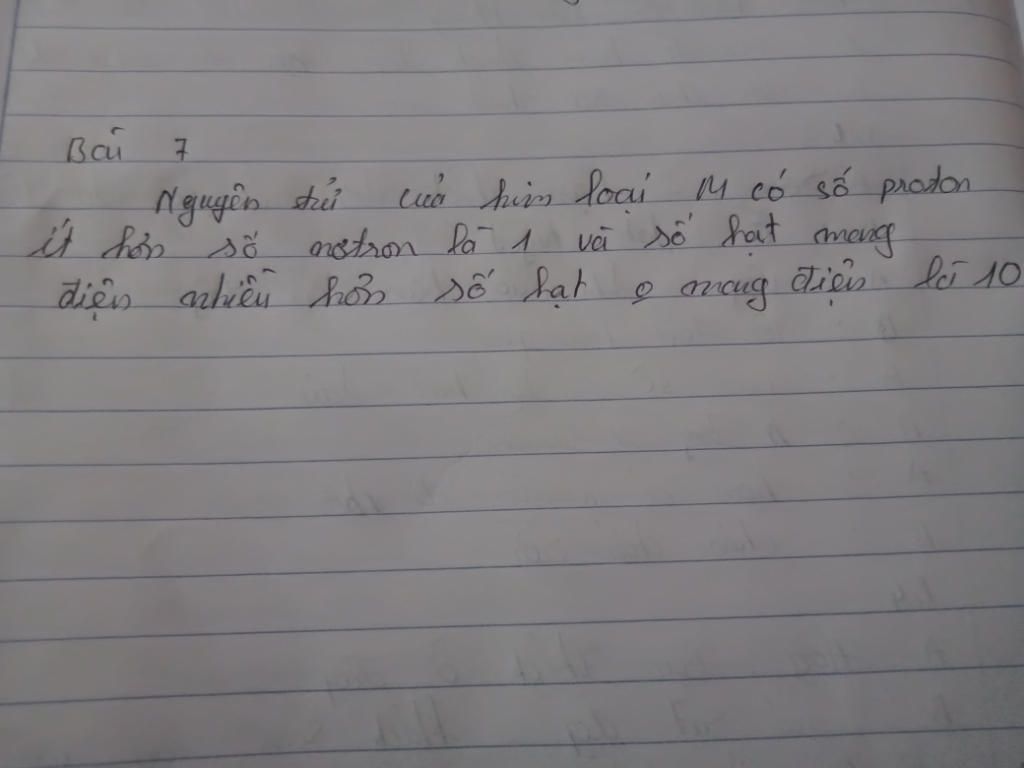 Bài 7
Nguyên tử của kim loại M có số proton
ít hơn số nơtron là 1 và số hạt mang
điện nhiều hơn số hạt o mang điện là 10